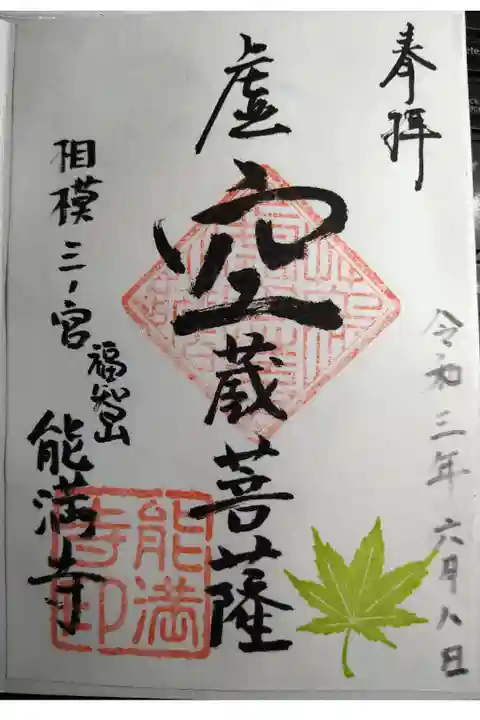 奉拝
令和三年六月八日
虚空蔵菩薩
相模三ノ宮
福智山
能満寺
能満寺印